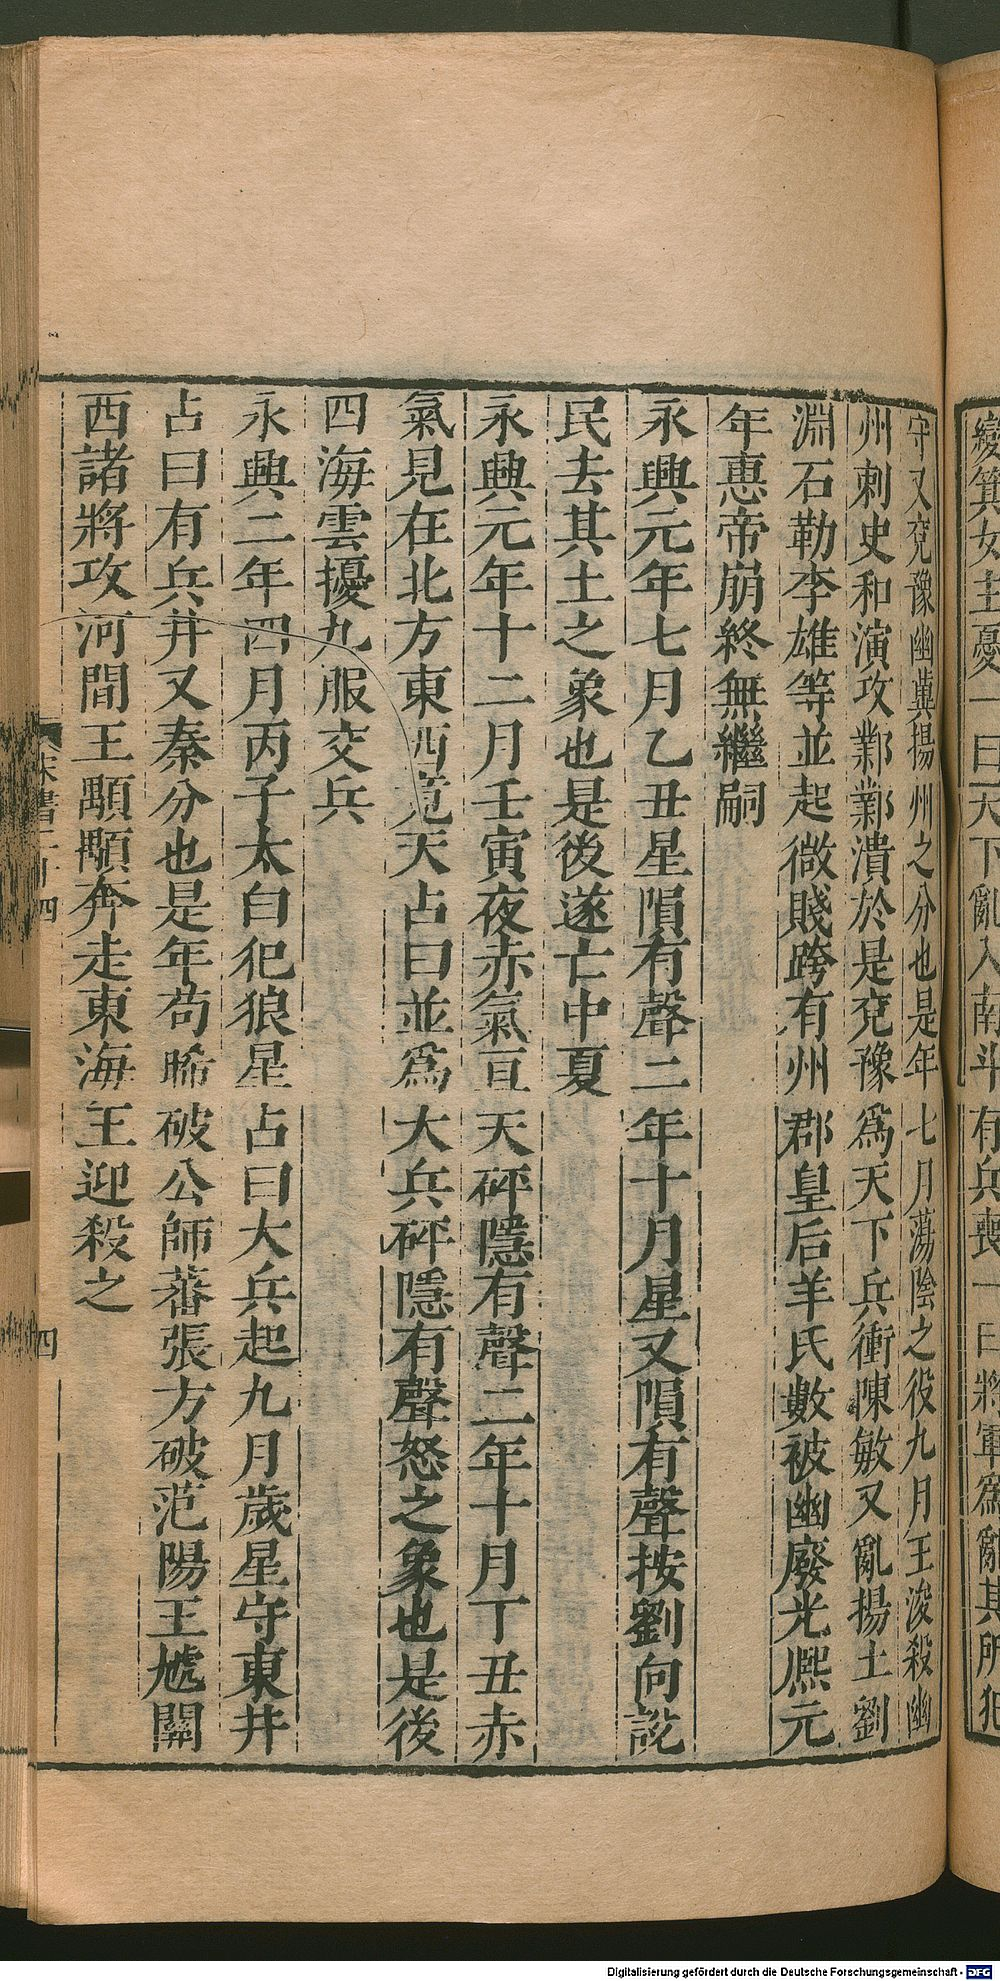 變箕女主憂一曰天下亂入南斗有兵喪一曰將軍爲亂其所犯
守又兗豫幽冀揚州之分也是年七月蕩陰之役九月王浚殺幽
州刺史和演攻鄴鄴潰於是兗豫爲天下兵衝陳敏又亂揚土劉
淵石勒李雄等並起微賤跨有州郡皇后羊氏數被幽廢光熙元
年惠帝崩終無繼嗣
永興元年七月乙丑星隕有聲二年十月星又隕有聲按劉向說
民去其土之象也是後遂亡中夏
永興元年十二月壬寅夜赤氣亘天砰隱有聲二年十月丁丑赤
氣見在北方東西竟天占曰並爲大兵砰隱有聲怒之象也是後
四海雲擾九服交兵
永興二年四月丙子太白犯狼星占曰大兵起九月歲星守東井
占曰有兵井又秦分也是年苟晞破公師蕃張方破范陽王虓關
西諸將攻河間王顒顒奔走東海王迎殺之
宋書二十四
四
Digitalisierung gefördert durch die Deutsche Forschungsgemeinschaft - DFG